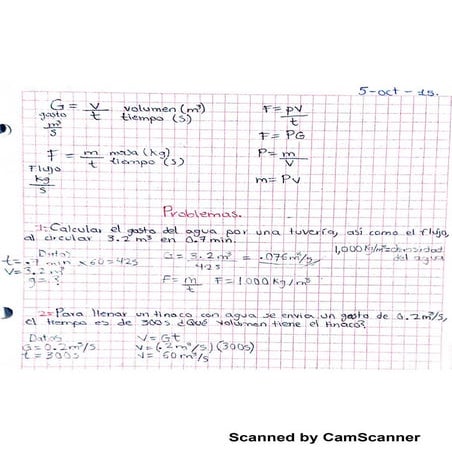 5-oct-15.
G = v/t volumen (m³) / tiempo (s)
gasto
m³/s
F = pV/t
F = PG
F = m/t masa (kg) / tiempo (s)
P = m/V
Flujo
kg/s
m = PV
Problemas.
1: Calcular el gasto del agua por una tuvería, así como el flujo,
al circular 3.2 m³ en 0.7 min.
1,000 kg/m³ = densidad del agua
Datos
t = .7 min x 60 = 42 s
V = 3.2 m³
g = ?
G = 3.2 m³/42 s = .076 m³/s
F = m/t F = 1000 kg/m³
2= Para llenar un tinaco con agua se envia un gasto de 0.2 m³/s,
el tiempo es de 300s ¿Qué volumen tiene el tinaco?
Datos
G = 0.2 m³/s
t = 300s
V = Gt
V = (.2 m³/s) (300s)
V = 60 m³/s
Scanned by CamScanner